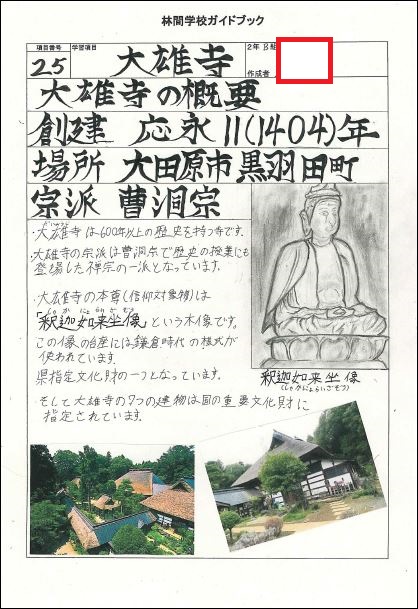 林間学校ガイドブック
項目番号 学習項目 2年 B組
25 大雄寺 作成者
大雄寺の概要
創建 応永11(1404)年
場所 大田原市黒羽田町
宗派 曹洞宗
・大雄寺は600年以上の歴史を持つ寺です。
・大雄寺の宗派は曹洞宗で歴史の授業にも
登場した禅宗の一派となっています。
・大雄寺の本尊(信仰対象物)は
「釈迦如来坐像」という木像です。
この像の台座には鎌倉時代の様式が
使われています。
県指定文化財の一つとなっています。
そして大雄寺の7つの建物は国の重要文化財に
指定されています。
釈迦如来坐像
(しゃかにょらいざぞう)